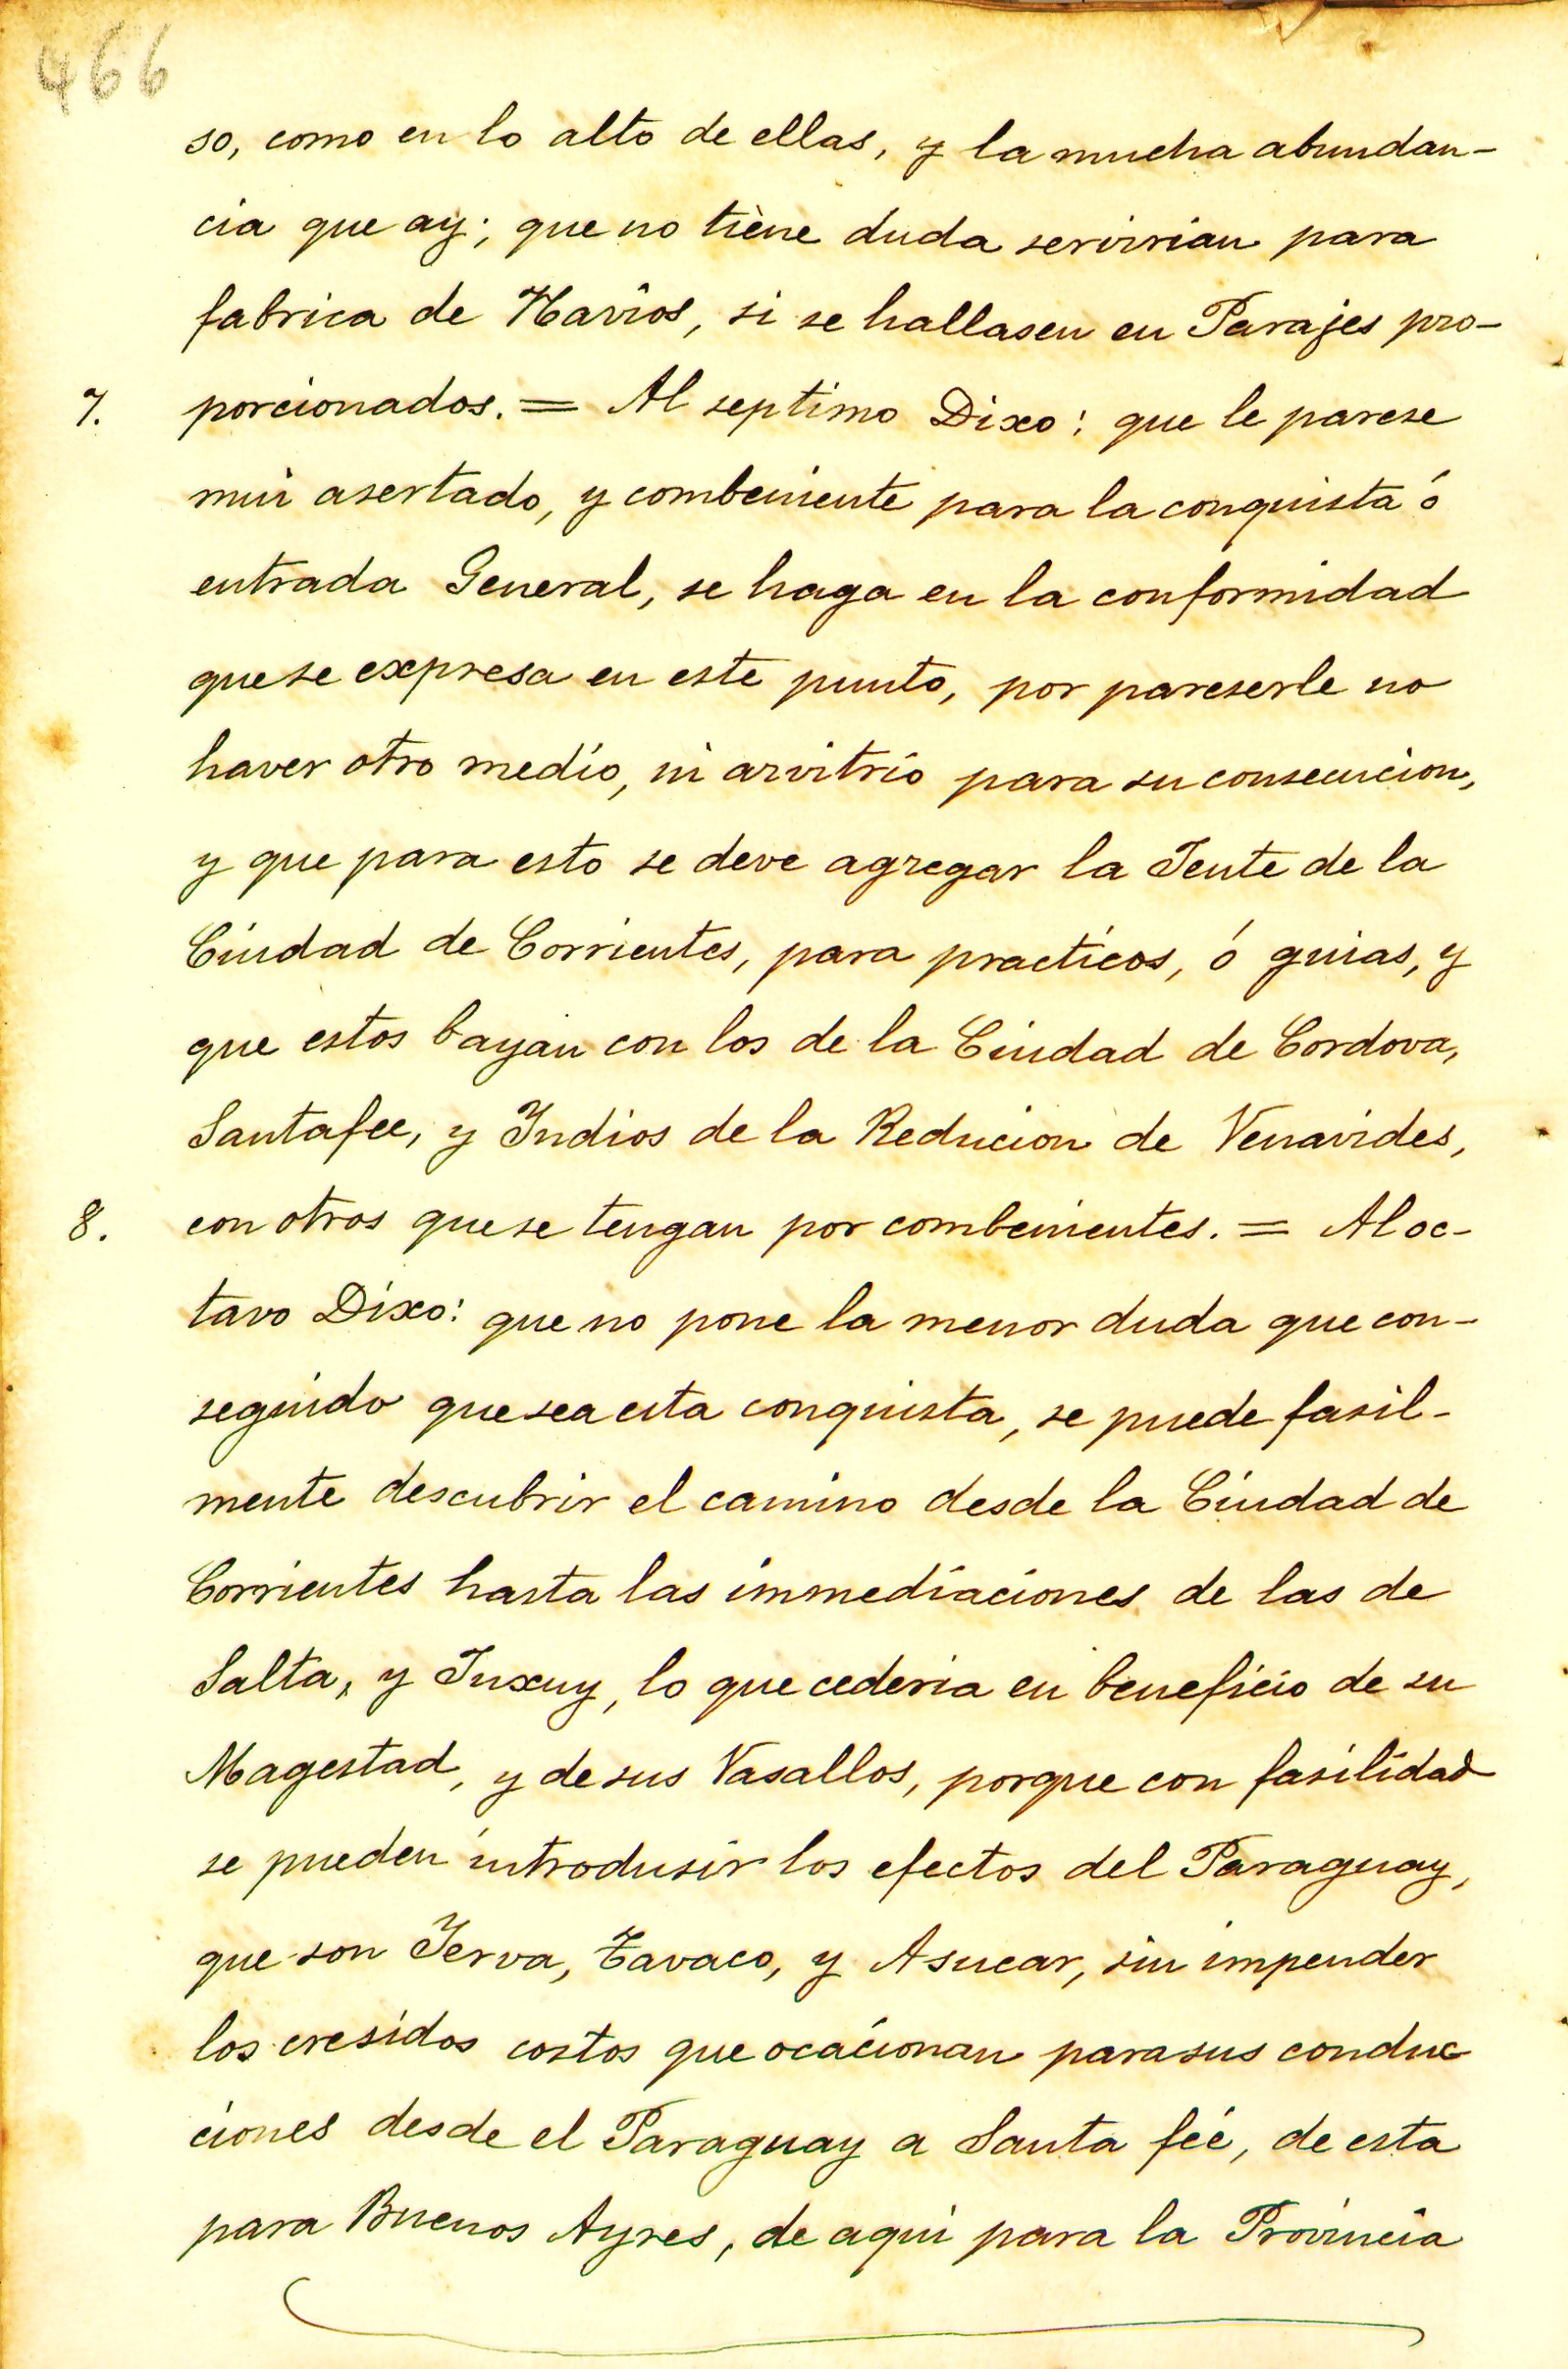 466
so, como en lo alto de ellas, y la mucha abundan-
cia que ay; que no tiene duda servirian para
fabrica de Navios, si se hallasen en Parajes pro-
7. porcionados. = Al septimo Dixo: que le parese
mui asertado, y combeniente para la conquista ó
entrada General, se haga en la conformidad
que se expresa en este punto, por pareserle no
haver otro medio, ni arvitrio para su consecucion,
y que para esto se deve agregar la Jente de la
Ciudad de Corrientes, para practicos, ó guias, y
que estos bayan con los de la Ciudad de Cordova,
Santafee, y Yndios de la Reducion de Venavides,
8. con otros que se tengan por combenientes. = Al oc-
tavo Dixo: que no pone la menor duda que con-
seguido que sea esta conquista, se puede fasil-
mente descubrir el camino desde la Ciudad de
Corrientes hasta las immediaciones de las de
Salta, y Juxuy, lo que cederia en beneficio de su
Magestad, y de sus Vasallos, porque con fasilidad
se pueden introdusir los efectos del Paraguay,
que son Yerva, Tavaco, y Asucar, sin impender
los cresidos costos que ocacionan para sus conduc
ciones desde el Paraguay a Santa feé, de esta
para Buenos Ayres, de aqui para la Provincia